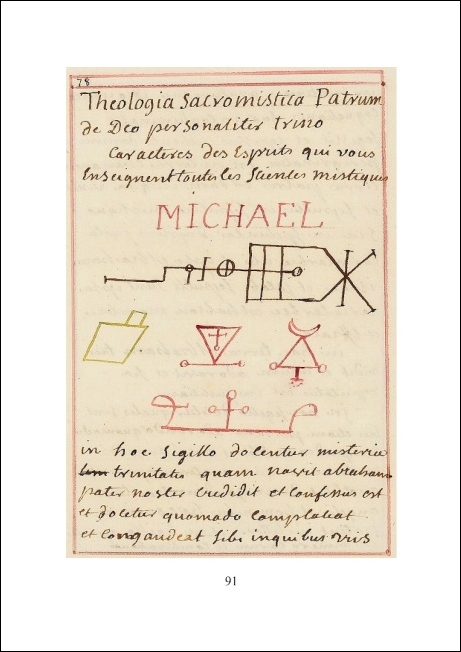 78
Theologia Sacromistica Patrum
de Deo personaliter trino
Caracteres des Esprits qui vous
Enseignent toutes les Sciences mistiques
MICHAEL
in hoc Sigillo docentur misteria
trinitatis quam novit abraham
pater noster Credidit et Confessus est
et docetur quomodo complaceat
et congaudeat sibi in quibus
91